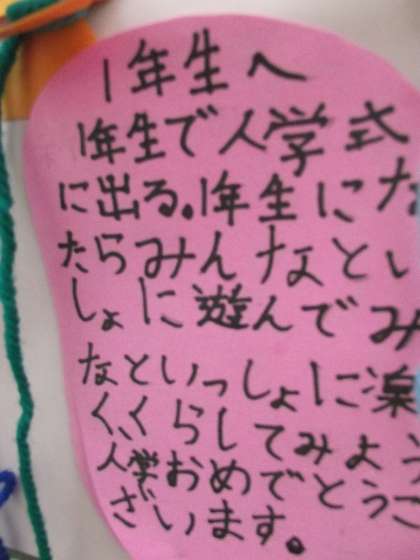 1年生へ
1年生で人学式
に出る。1年生にな
たらみんなとい
しょに遊んでみ
なといっしょに楽
く、くらしてみよう
人学おめでとうご
ざいます。